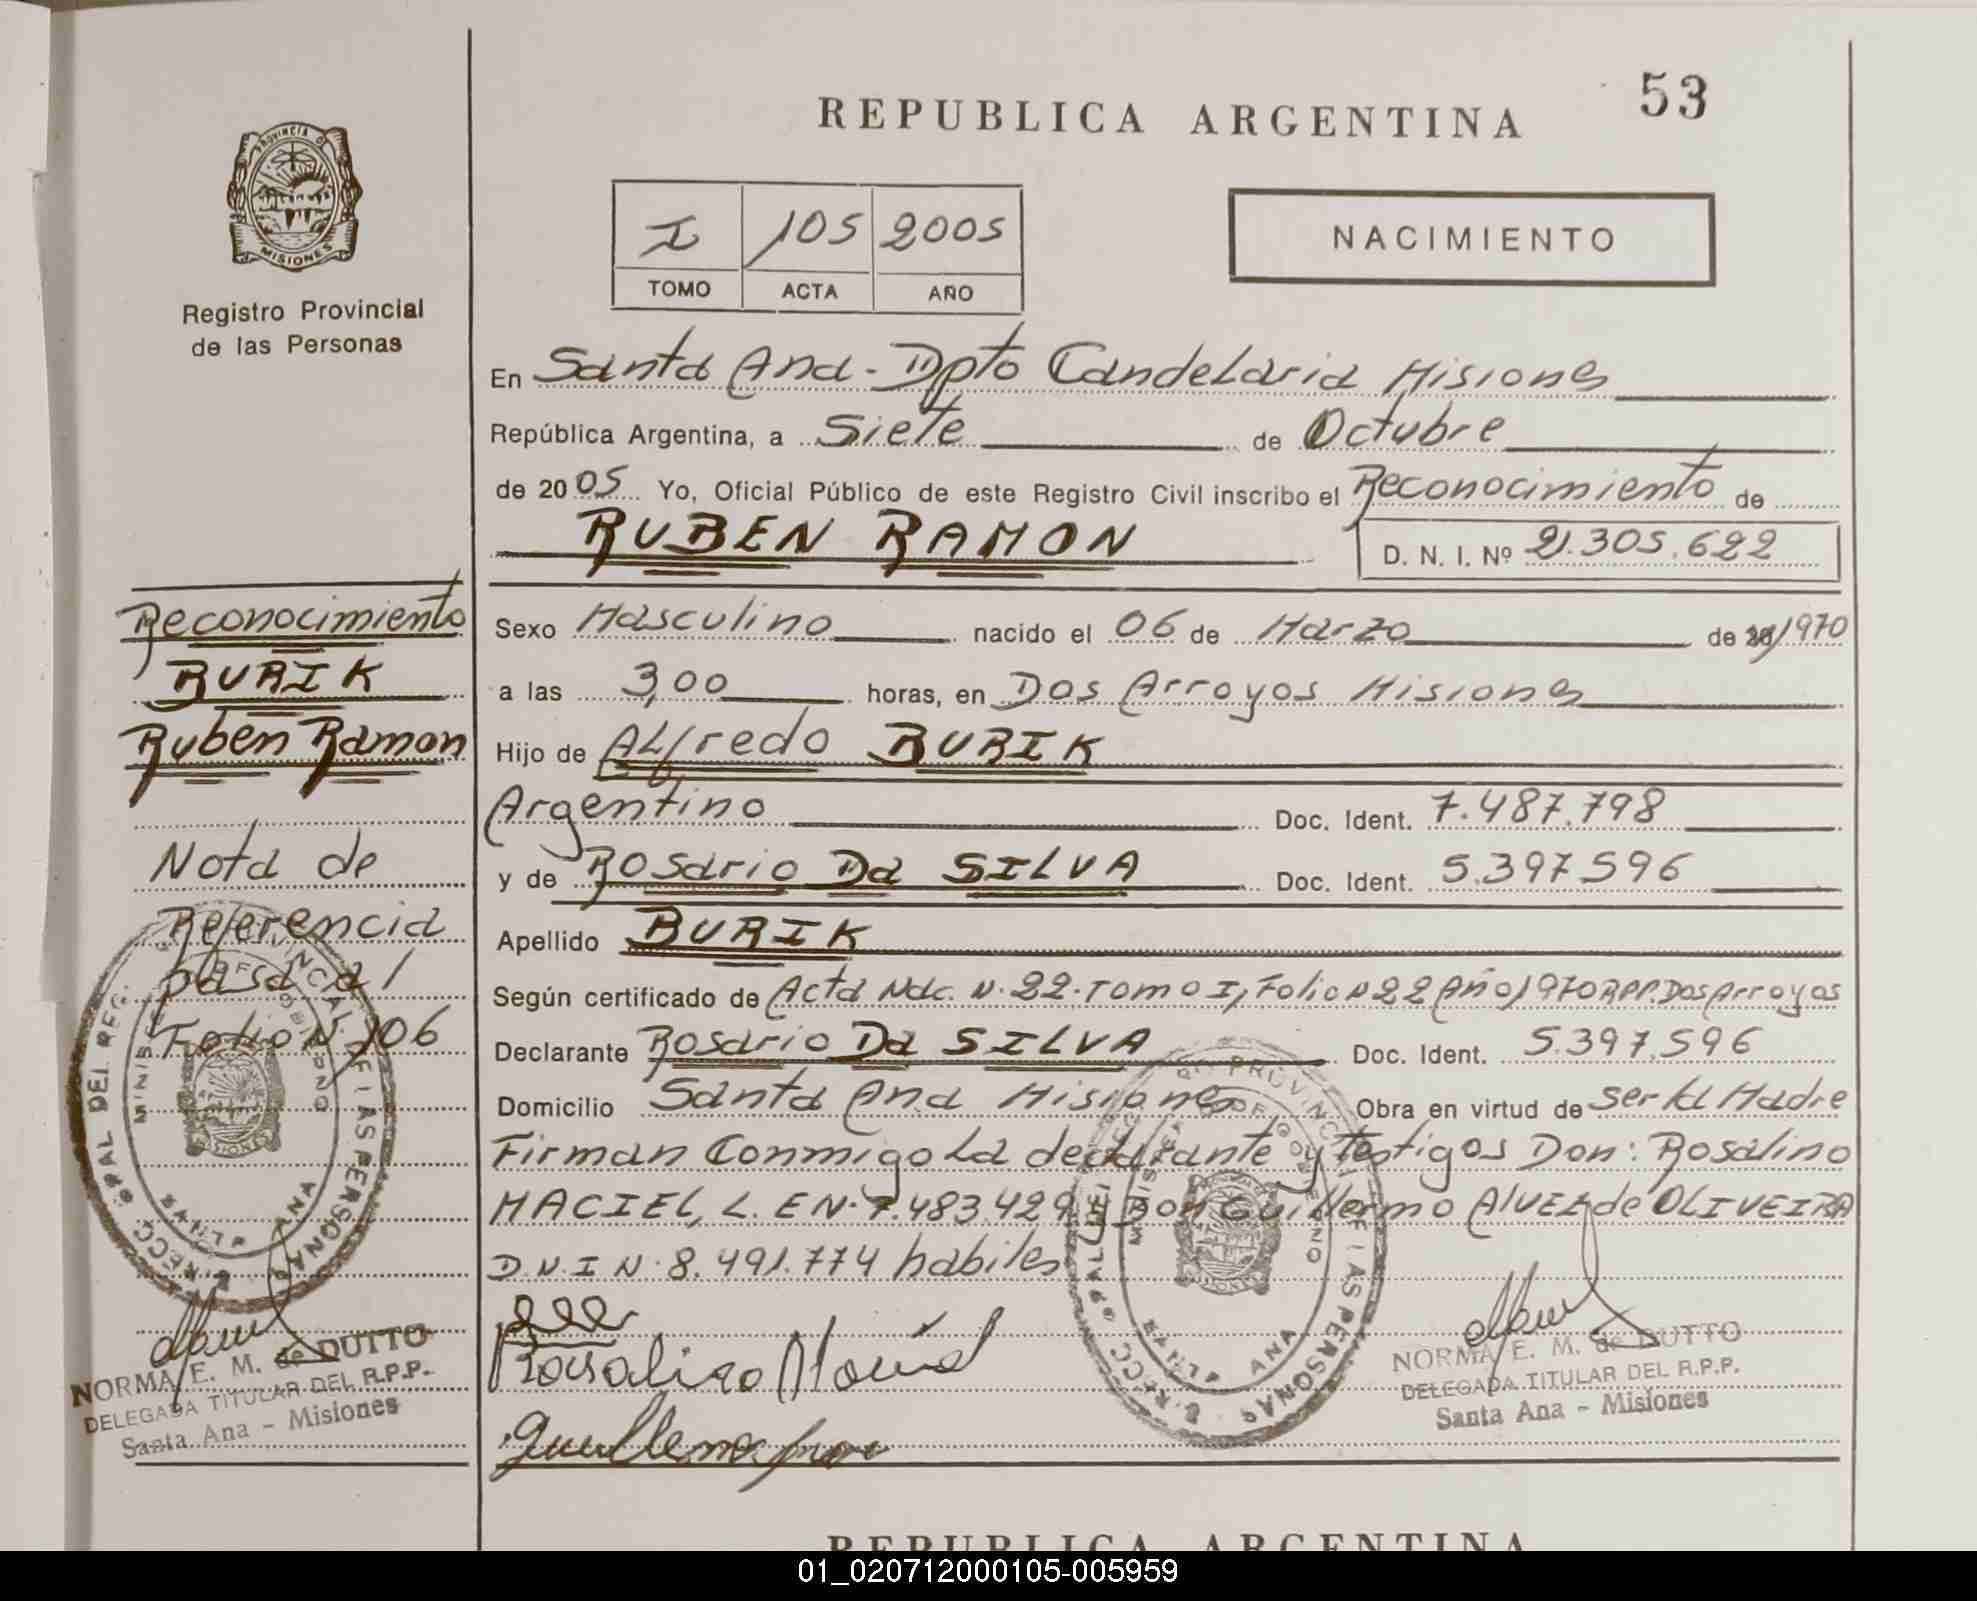 53
REPUBLICA ARGENTINA
PROVINCIA D
MISIONES
Registro Provincial
de las Personas
I 105 2005
TOMO ACTA AÑO
NACIMIENTO
En Santa Ana - Dpto Candelaria Misiones
República Argentina, a Siete de Octubre
de 2005 Yo, Oficial Público de este Registro Civil inscribo el Reconocimiento de
RUBEN RAMON D. N. I. Nº 21.305.622
Sexo Masculino nacido el 06 de Marzo de 1970
a las 3,00 horas, en Dos Arroyos Misiones
Hijo de Alfredo BURIK
Argentino Doc. Ident. 7.487.798
y de Rosario Da SILVA Doc. Ident. 5.397.596
Apellido BURIK
Según certificado de Acta Nac. N.22.Tomo I, Folio N 22 Año 1970 RPP. Dos Arroyos
Declarante Rosario Da SILVA Doc. Ident. 5.397.596
Domicilio Santa Ana Misiones Obra en virtud de ser la Madre
Firman Conmigo La declarante y testigos Don: Rosalino
MACIEL, L. E N. 7.483.429 y Don Guillermo Alvez de OLIVEIRA
D.N.I N. 8.491.774 habiles
Reconocimiento
BURIK
Ruben Ramon
Nota de
Referencia
pasa al
Folio N 106
NORMA E. M. de DUTTO
DELEGADA TITULAR DEL R.P.P.
Santa Ana - Misiones
NORMA E. M. de DUTTO
DELEGADA TITULAR DEL R.P.P.
Santa Ana - Misiones
REPUBLICA ARGENTINA
01_020712000105-005959